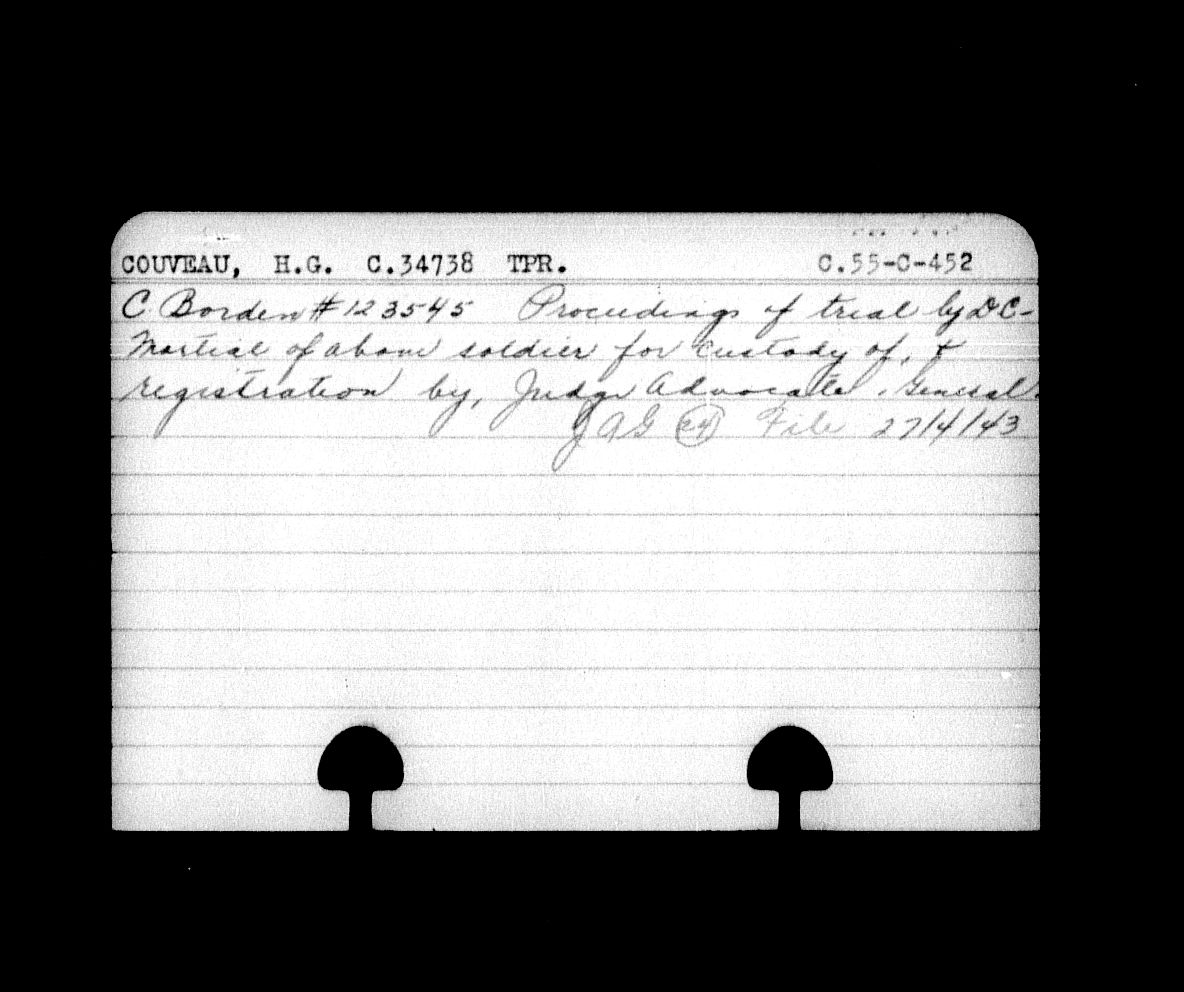 COUVEAU, H.G. C.34738 TPR. C.55-C-452
C. Borden #123545 Proceedings of trial by D C-
Martial of above soldier for custody of, &
registration by, Judge Advocate General.
JAG File 27/4/43